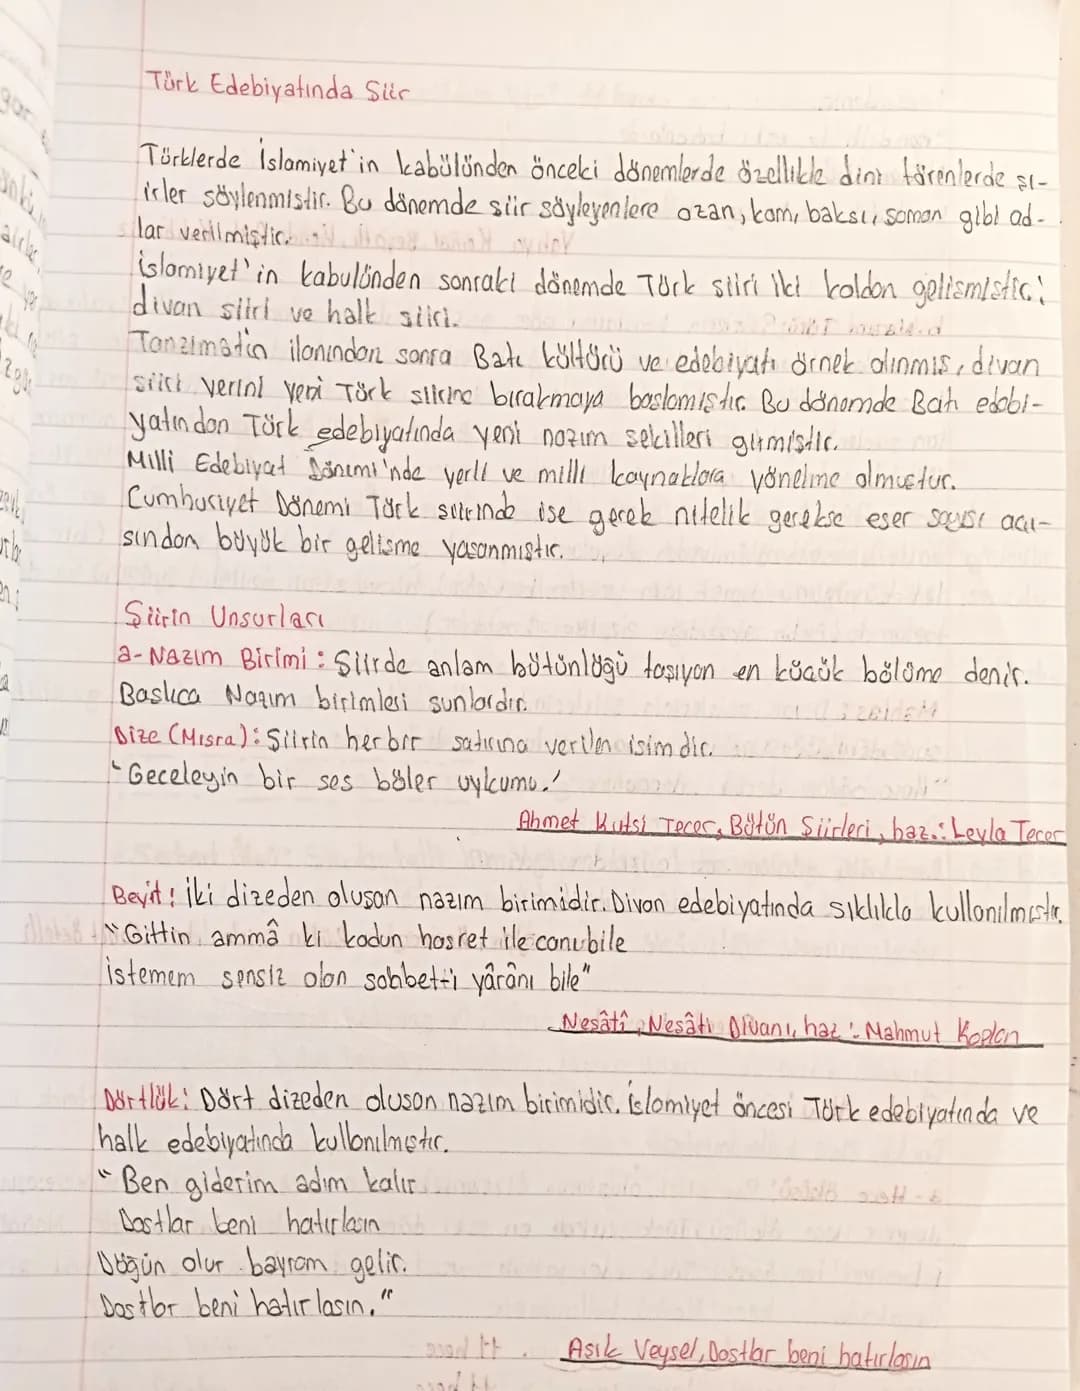 Türk Edebiyatında Şiir
Türklerde İslamiyet'in kabülünden önceki dönemlerde özellikle dini törenlerde şi-
irler söylenmistir. Bu dönemde siir söyleyenlere ozan, kam, baksı, saman gibi ad-
lar verilmiştir.
İslamiyet'in kabulünden sonraki dönemde Türk siiri iki koldan gelismistir;
divan siiri ve halk siiri.
Tanzimatın ilanından sonra Batı kültürü ve edebiyatı örnek alınmıs, divan
siiri yerini yeni Türk siirine bırakmaya baslamıstır. Bu dönemde Batı edebi-
yatından Türk edebiyatında yeni nazım sekilleri girmistir.
Milli Edebiyat Dönemi'nde yerli ve milli kaynaklara yönelme olmustur.
Cumhuriyet Dönemi Türk siirinde ise gerek nitelik gerekse eser sayısı açı-
sından büyük bir gelisme yasanmıstır.
Şiirin Unsurları
a- Nazım Birimi: Siirde anlam bütünlüğü tasıyan en küçük bölüme denir.
Baslıca Nazım birimleri sunlardır.
Dize (Mısra): Siirin her bir satırına verilen isimdir.
"Geceleyin bir ses böler uykumu."
Ahmet Kutsi Tecer, Bütün Siirleri, haz.: Leyla Tecer
Beyit: İki dizeden olusan nazım birimidir. Divan edebiyatında sıklıkla kullanılmıstır.
"Gittin ammâ ki kodun hasret ile canı bile
istemem sensiz olan sohbet-i yârânı bile"
Nesâtî, Nesâti Divanı, haz: Mahmut Kaplan
Dörtlük: Dört dizeden olusan nazım birimidir. İslamiyet öncesi Türk edebiyatında ve
halk edebiyatında kullanılmıstır.
"Ben giderim adım kalır
Dostlar beni hatırlasın
Düğün olur bayram gelir.
Dostlar beni hatırlasın."
Asık Veysel, Dostlar beni hatırlasın